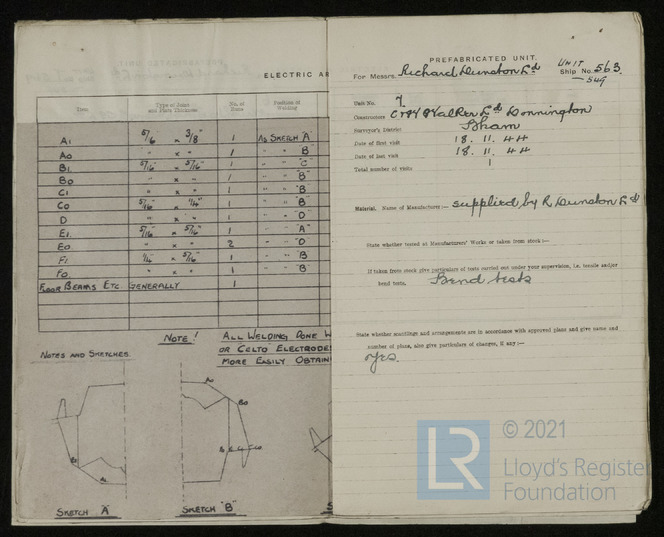 ELECTRIC AR
Item Type of Joint and Plate Thickness No. of Runs Position of Welding
A1 5/16 × 3/8" 1 AS SKETCH "A"
A0 " × " 1 " " "B"
B1 5/16" × 5/16" 1 " " "C"
B0 " × " 1 " " "B"
C1 " × " 1 " " "B"
C0 5/16" × 1/4" 1 " " "B"
D " × " 1 " " "D"
E1 5/16" × 5/16" 1 " " "A"
E0 " × " 2 " " "D"
F1 1/4 × 5/16" 1 " " "B"
F0 " × " 1 " " "B"
FLOOR BEAMS ETC GENERALLY 1
NOTE! ALL WELDING DONE W
OR CELTO ELECTRODE
MORE EASILY OBTAIN
NOTES AND SKETCHES
A0
B0
B1
A1
SKETCH "A"
SKETCH "B"
PREFABRICATED UNIT.
For Messrs. Richard Dunston Ld UNIT Ship No. 563
549
Unit No. 7
Constructors C & W Walker Ld Donnington
Surveyor's District B'ham
Date of first visit 18. 11. 44
Date of last visit 18. 11. 44
Total number of visits 1
Material. Name of Manufacturer:— supplied by R Dunston Ld
State whether tested at Manufacturers' Works or taken from stock:—
If taken from stock give particulars of tests carried out under your supervision, i.e. tensile and/or
bend tests. Bend tests
State whether scantlings and arrangements are in accordance with approved plans and give name and
number of plans, also give particulars of changes, if any:—
Yes.
LR © 2021
Lloyd's Register
Foundation